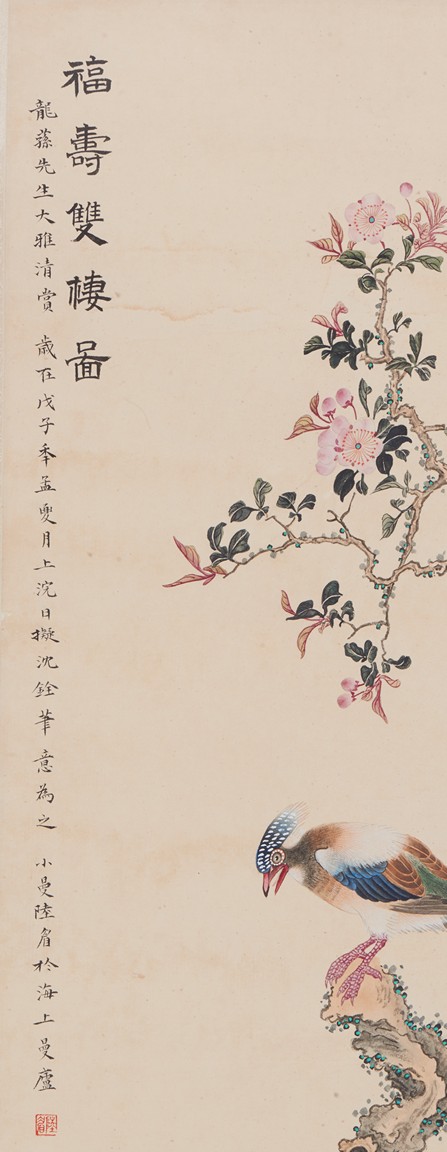 福壽雙棲圖
龍蓀先生大雅清賞 歲在戊子季孟夏月上浣日擬沈銓筆意為之 小曼陸眉於海上曼廬
陸眉